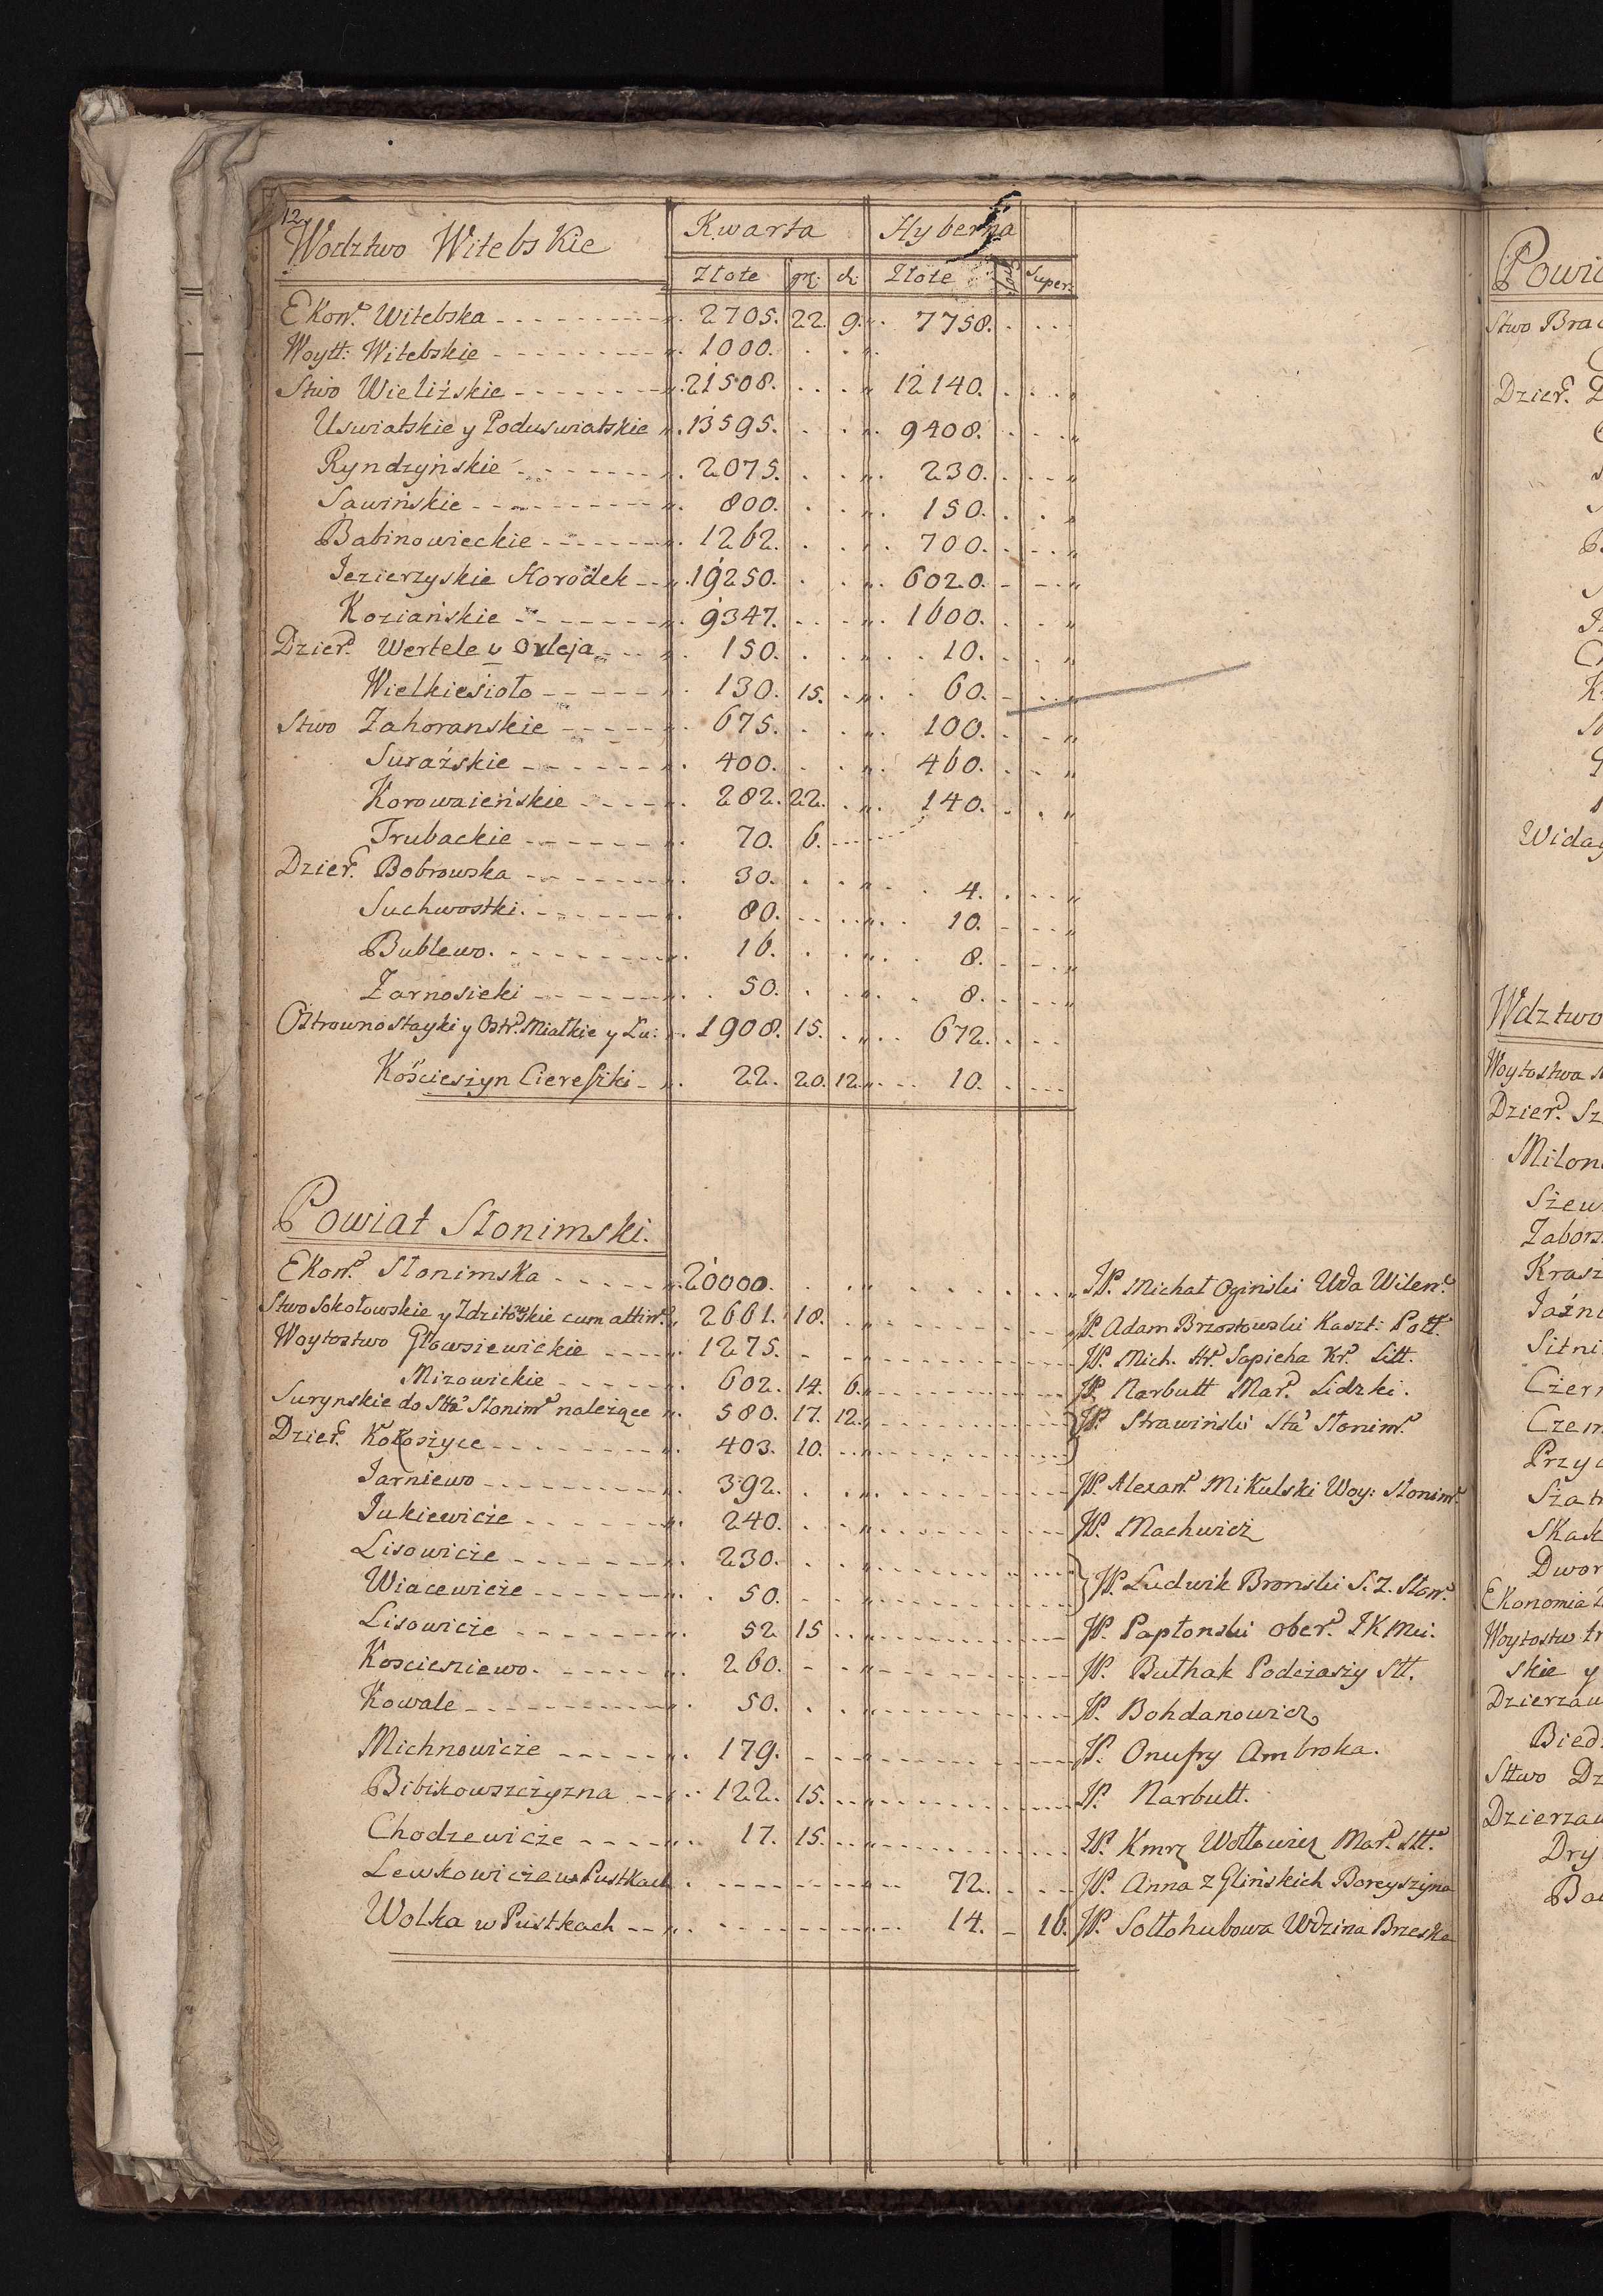 12.
Wodztwo Witebskie Kwarta Hyberna
Złote gr: d: Złote Super:
Ekon: Witebska 2705. 22. 9. 7758.
Woytt: Witebskie 1000.
Stwo Wieliżskie 21508. 12140.
Uswiatskie y Poduswiatskie 13595. 9408.
Ryndzyńskie 2075. 230.
Sawińskie 800. 150.
Babinowieckie 1262. 700.
Jezierzyskie Horodek 19250. 6020.
Koziańskie 9347. 1600.
Dzier: Wertele y Orleja 150. 10.
Wielkiesioło 130. 15. 60.
Stwo Zahoranskie 675. 100.
Surażskie 400. 460.
Korowaieńskie 282. 22. 140.
Trubackie 70. 6.
Dzier: Bobrowska 30. 4.
Suchwostki. 80. 10.
Bublewo. 16. 8.
Zarnosieki 50. 8.
Ostrowno Stayki y Ostr: Miałkie y Łu: 1908. 15. 672.
Kościeszyn Ciereszki 22. 20. 12. 10.
Powiat Słonimski.
Ekon: Słonimska 20000. JP. Michał Ogiński Wda Wilen:
Stwo Sokołowskie y Zdzitowskie cum attin: 2661. 18. JP. Adam Brzostowski Kaszt: Połł:
Woytostwo Głowsiewickie 1275. JP. Mich. Hr: Sapieha Kr: Litt.
Mizowickie 602. 14. 6. JP. Narbutt Mar: Lidzki.
Surynskie do Stta Słonim: należące 580. 17. 12. JP. Strawiński Sta Słonim:
Dzier: Kołoszyce 403. 10.
Jarniewo 392. JP. Alexan: Mikulski Woy: Słonim:
Jukiewicze 240. JP. Machwicz
Lisowicze 230. JP. Ludwik Bronski S. Z. Słon:
Wiacewicze 50.
Lisowicze 52 15 JP. Papłonski Ober: JKMci.
Koscieniewo. 260. JP. Bułhak Podczaszy Słł.
Kowale 50. JP. Bohdanowicz
Michnowicze 179. JP. Onufry Ambroka.
Bibikowszczyzna 122. 15. JP. Narbutt.
Chodzewicze 17. 15. JP. Kmrz Wołłowicz Mar: Słł:
Lewkowicze w Pustkach 72. JP. Anna z Glińskich Boreyszyna
Wolka w Pustkach 14. 16. JP. Sołłohubowa Wdzina Brzeska
Powi
Stwo Bra
Dzier:
Widay
Wdztwo
Woytostwa
Dzier: Sz
Milon
Szew
Zabors
Krasz
Jaźni
Sitni
Czer
Czem
Przy
Szat
Skak
Dwor
Ekonomia
Woytostw
skie y
Dzierzaw
Bied
Sttwo Dz
Dzierzaw
Dry